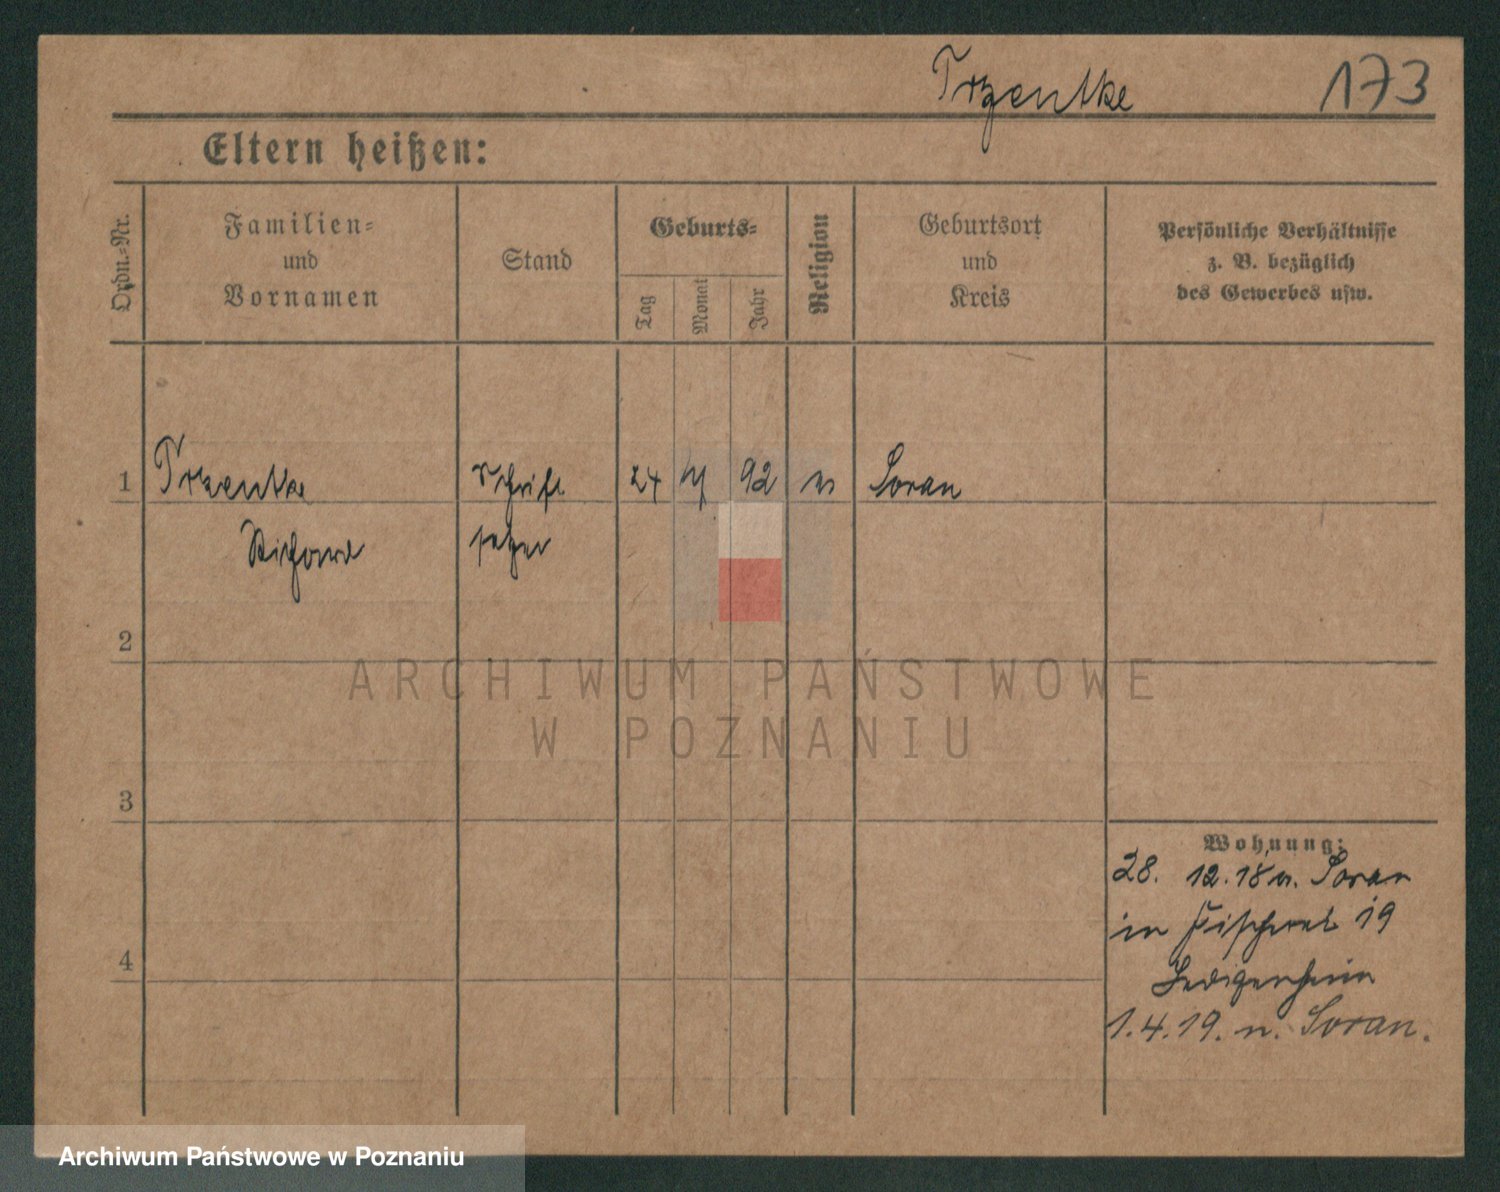 Trzentke 173
Eltern heißen:
Ordn.-Nr.
Familien-
und
Vornamen
Stand
Geburts-
Tag
Monat
Jahr
Religion
Geburtsort
und
Kreis
Persönliche Verhältnisse
z. B. bezüglich
des Gewerbes usw.
1 Trzentke Schrift 24 92 Soran
Richard setzer
2
3
4
Wohnung:
28. 12. 18 v. Soran
in Fischerei 19
Ledigenheim
1.4.19. n. Soran.
ARCHIWUM PAŃSTWOWE
W POZNANIU
Archiwum Państwowe w Poznaniu